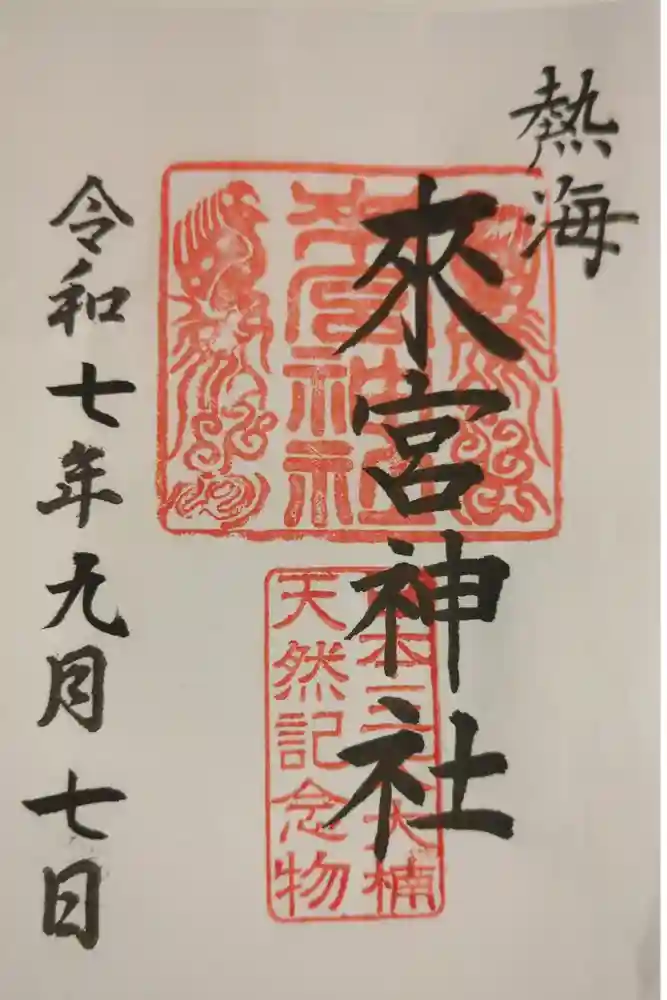 熱海
來宮神社
來宮神社
日本三大大楠
天然記念物
令和七年九月七日